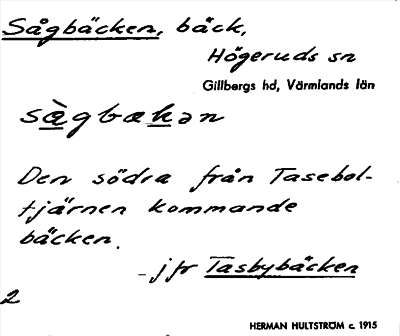 Sågbäcken, bäck,
Högeruds sn
Gillbergs hd, Värmlands län
sàgbækən
Den södra från Tasebol-
tjärnen kommande
bäcken.
– jfr Tasbybäcken
2
HERMAN HULTSTRÖM c. 1915